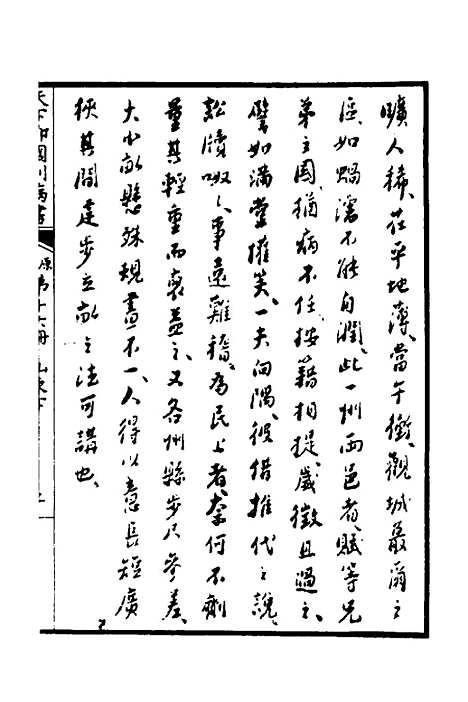 曠人稀、茌平地薄、當午衝、觀城蕞爾之
區、如蝸濡不能自潤、此一州兩邑者、賦等兄
弟之國、猶病不任、按籍相提、歲徵且過之、
譬如滿堂擁笑、一夫向隅、彼借推代之說、
訟牘呶呶、事遠難稽、為民上者、奈何不劑
量其輕重而裒益之、又各州縣步尺參差、
大小畝懸殊、規畫不一、人得以意長短廣
狹其間、是步立畝之法可講也、
天下郡國利病書 原第十六冊 山東下